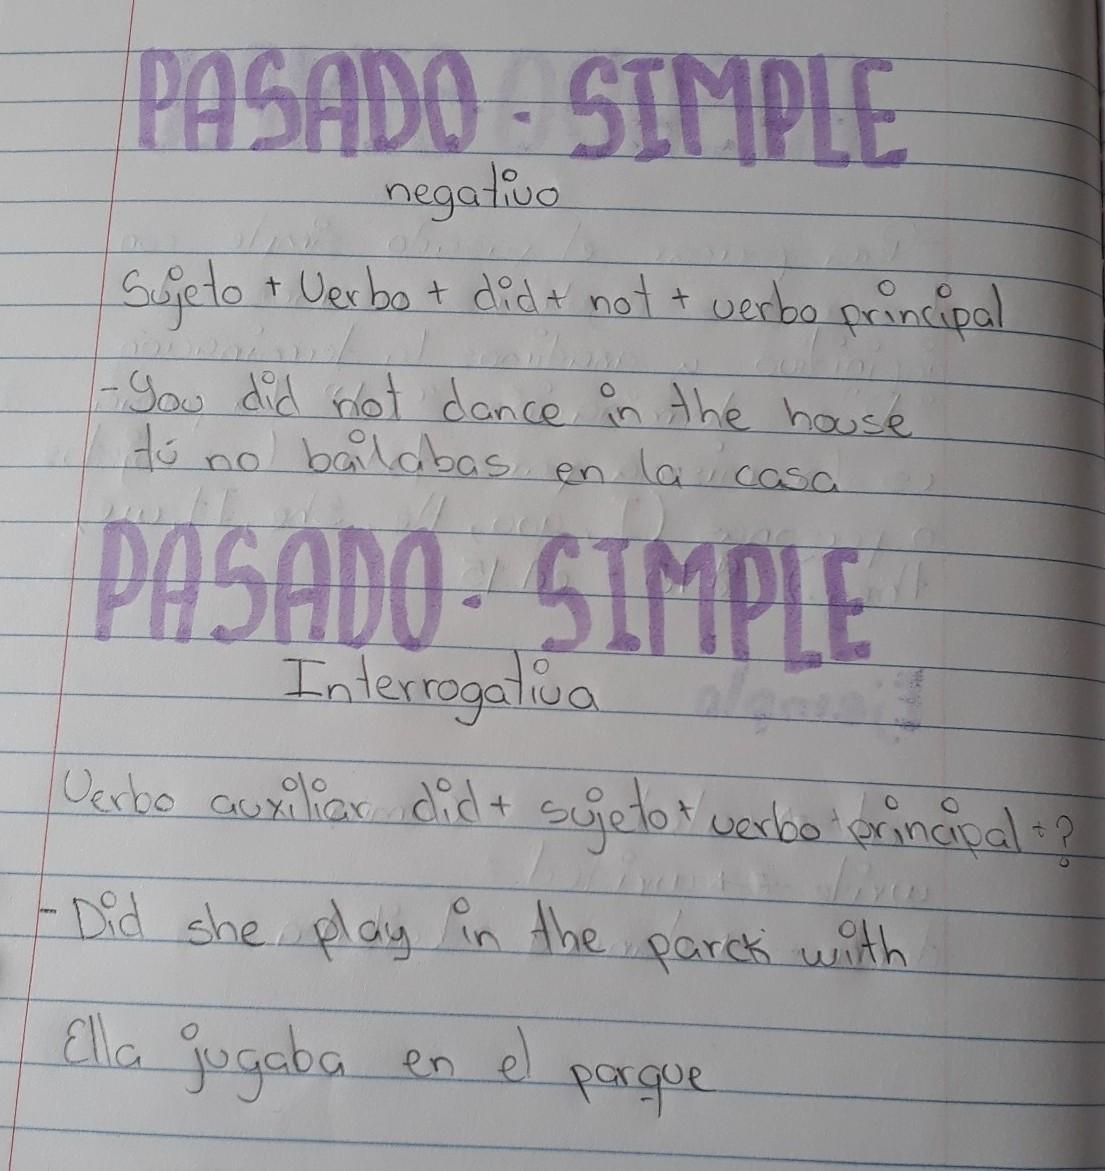 PASADO - SIMPLE
negativo
Sujeto + Verbo + did + not + verbo principal
- You did not dance in the house
tú no bailabas en la casa
PASADO - SIMPLE
Interrogativa
Verbo auxiliar did + sujeto + verbo principal + ?
- Did she play in the parck with
Ella jugaba en el parque